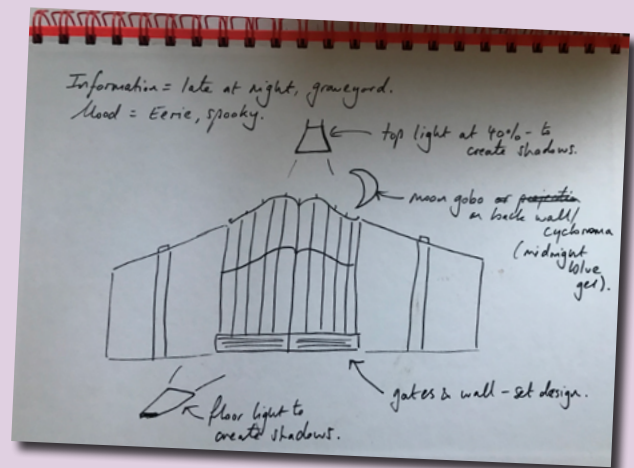 Information = late at night, graveyard.
Mood = Eerie, spooky.
top light at 40% - to
create shadows.
moon gobo or projection
on back wall/
cyclorama
(midnight
blue
gel).
gates & wall - set design.
floor light to
create shadows.